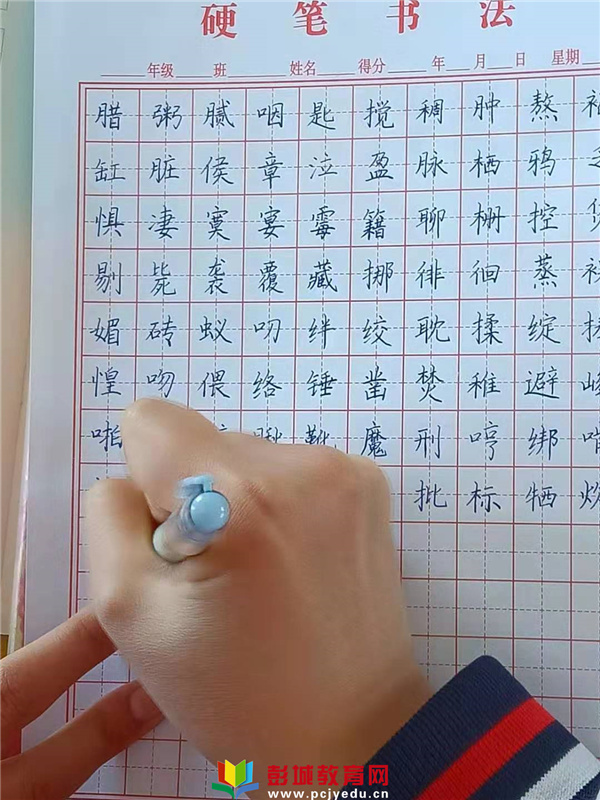 硬笔书法
年级 班 姓名 得分 年 月 日 星期
腊 粥 腻 咽 匙 搅 稠 肿 熬
缸 脏 侯 章 泣 盈 脉 栖 鸦
惧 凄 寞 宴 霉 籍 聊 栅 控
剔 毙 袭 覆 藏 挪 徘 徊 蒸
媚 砖 蚁 叨 绊 绞 耽 揉 绽
惶 吻 偎 络 锤 凿 焚 稚 避
啪 瞅 靴 魔 刑 哼 绑 啃
批 标 牺
彭城教育网
www.pcjyedu.cn